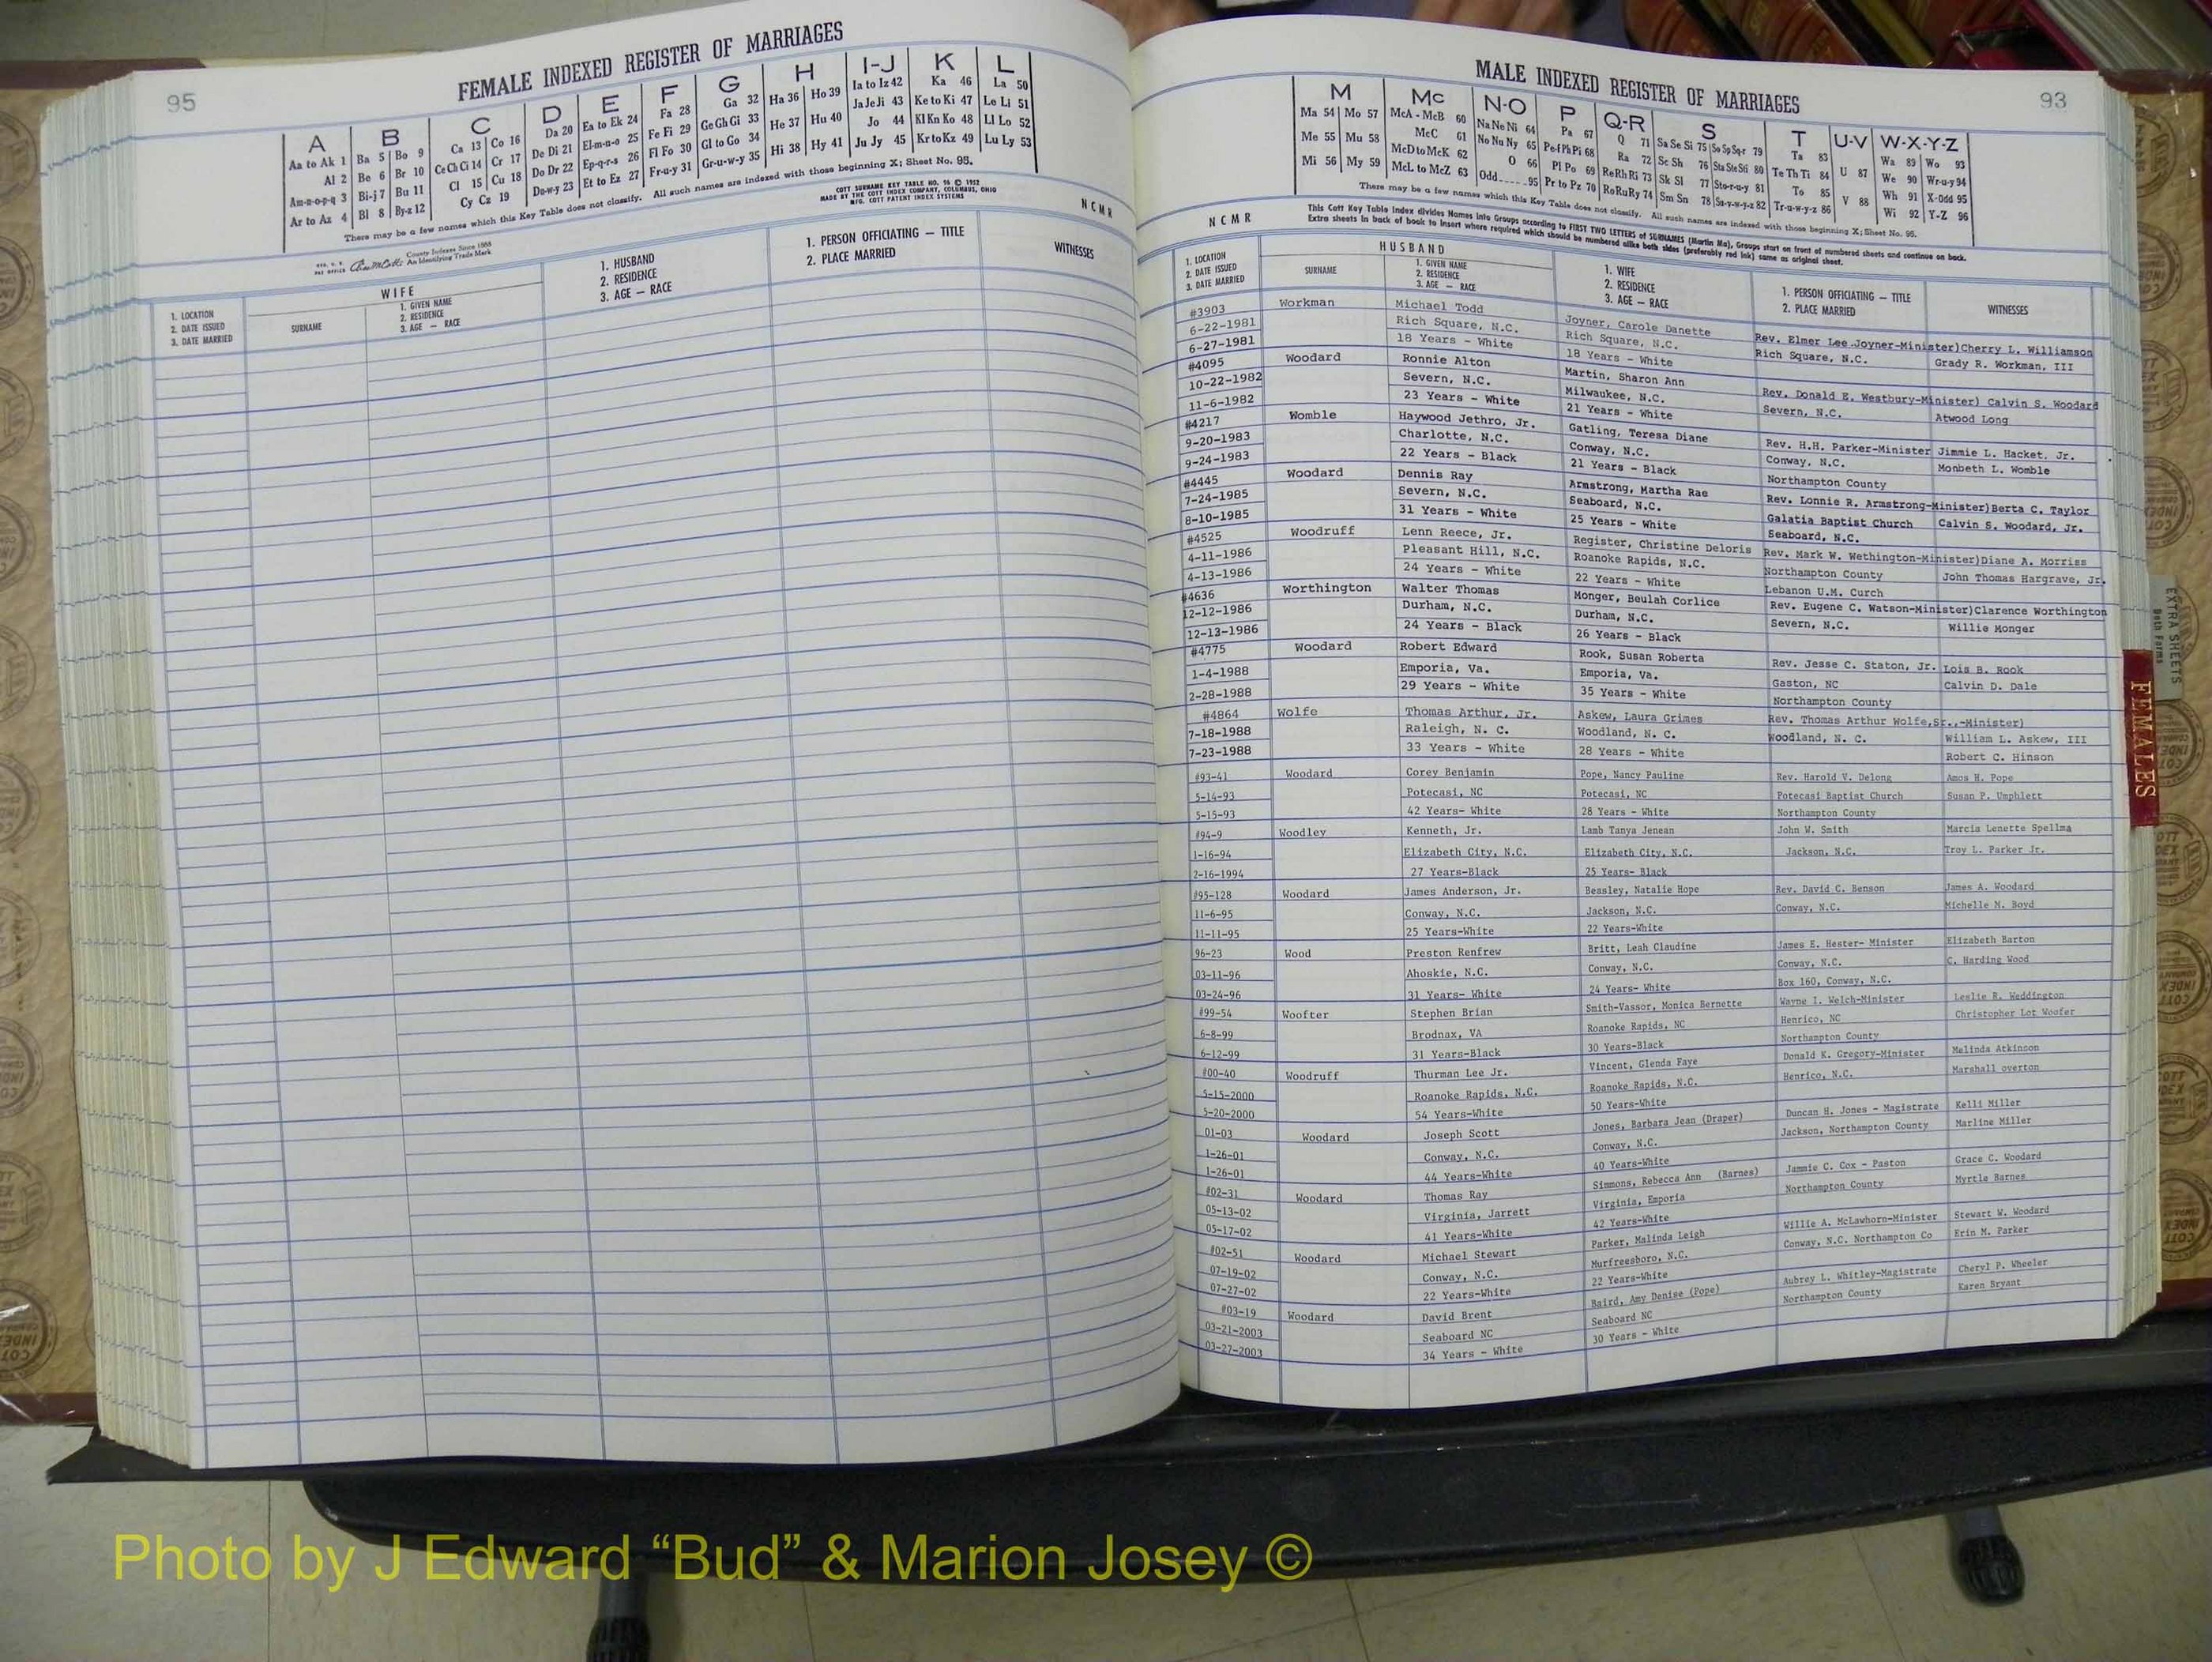 95
FEMALE INDEXED REGISTER OF MARRIAGES
A B C D E F G H I-J K L
Aa to Ak 1 Ba 5 Bo 9 Ca 13 Co 16 Da 20 Ea to Ek 24 Fa 28 Ga 32 Ha 36 Ho 39 Ia to Iz 42 Ka 46 La 50
Al 2 Be 6 Br 10 Ce Ch Ci 14 Cr 17 De Di 21 El-m-n-o 25 Fe Fi 29 Ge Gh Gi 33 He 37 Hu 40 Ja Je Ji 43 Ke to Ki 47 Le Li 51
Am-n-o-p-q 3 Bi-j 7 Bu 11 Cl 15 Cu 18 Do Dr 22 Ep-q-r-s 26 Fl Fo 30 Gl to Go 34 Hi 38 Hy 41 Jo 44 Kl Kn Ko 48 Ll Lo 52
Ar to Az 4 Bl 8 By-z 12 Cy Cz 19 Du-w-y 23 Et to Ez 27 Fr-u-y 31 Gr-u-w-y 35 Ju Jy 45 Kr to Kz 49 Lu Ly 53
There may be a few names which this Key Table does not classify. All such names are indexed with those beginning X; Sheet No. 95.
County Indexes Since 1888
An Identifying Trade Mark
COTT SURNAME KEY TABLE NO. 96 © 1952
MADE BY THE COTT INDEX COMPANY, COLUMBUS, OHIO
MFG. COTT PATENT INDEX SYSTEMS
NCMR
1. LOCATION
2. DATE ISSUED
3. DATE MARRIED
WIFE
SURNAME
1. GIVEN NAME
2. RESIDENCE
3. AGE — RACE
1. HUSBAND
2. RESIDENCE
3. AGE — RACE
1. PERSON OFFICIATING — TITLE
2. PLACE MARRIED
WITNESSES
MALE INDEXED REGISTER OF MARRIAGES
93
M Mc N-O P Q-R S T U-V W-X-Y-Z
Ma 54 Mo 57 McA - McB 60 Na Ne Ni 64 Pa 67 Q 71 Sa Se Si 75 So Sp Sq-r 79 Ta 83 Wa 89 Wo 93
Me 55 Mu 58 McC 61 No Nu Ny 65 Pe-f Ph Pi 68 Ra 72 Sc Sh 76 Sta Ste Sti 80 Te Th Ti 84 U 87 We 90 Wr-u-y 94
Mi 56 My 59 McD to McK 62 O 66 Pl Po 69 Re Rh Ri 73 Sk Sl 77 Sto-r-u-y 81 To 85 Wh 91 X-Odd 95
McL to McZ 63 Odd.....95 Pr to Pz 70 Ro Ru Ry 74 Sm Sn 78 Su-v-w-y-z 82 Tr-u-w-y-z 86 V 88 Wi 92 Y-Z 96
There may be a few names which this Key Table does not classify. All such names are indexed with those beginning X; Sheet No. 95.
NCMR
This Cott Key Table Index divides Names into Groups according to FIRST TWO LETTERS of SURNAMES (Martin Ma), Groups start on front of numbered sheets and continue on back.
Extra sheets in back of book to insert where required which should be numbered alike both sides (preferably red ink) same as original sheet.
1. LOCATION
2. DATE ISSUED
3. DATE MARRIED
HUSBAND
SURNAME
1. GIVEN NAME
2. RESIDENCE
3. AGE — RACE
1. WIFE
2. RESIDENCE
3. AGE — RACE
1. PERSON OFFICIATING — TITLE
2. PLACE MARRIED
WITNESSES
#3903 Workman Michael Todd Joyner, Carole Danette Rev. Elmer Lee Joyner-Minister)Cherry L. Williamson
6-22-1981 Rich Square, N.C. Rich Square, N.C. Rich Square, N.C. Grady R. Workman, III
6-27-1981 18 Years - White 18 Years - White
#4095 Woodard Ronnie Alton Martin, Sharon Ann Rev. Donald E. Westbury-Minister) Calvin S. Woodard
10-22-1982 Severn, N.C. Milwaukee, N.C. Severn, N.C. Atwood Long
11-6-1982 23 Years - White 21 Years - White
#4217 Womble Haywood Jethro, Jr. Gatling, Teresa Diane Rev. H.H. Parker-Minister Jimmie L. Hacket, Jr.
9-20-1983 Charlotte, N.C. Conway, N.C. Conway, N.C. Monbeth L. Womble
9-24-1983 22 Years - Black 21 Years - Black Northampton County
#4445 Woodard Dennis Ray Armstrong, Martha Rae Rev. Lonnie R. Armstrong-Minister)Berta C. Taylor
7-24-1985 Severn, N.C. Seaboard, N.C. Galatia Baptist Church Calvin S. Woodard, Jr.
8-10-1985 31 Years - White 25 Years - White Seaboard, N.C.
#4525 Woodruff Lenn Reece, Jr. Register, Christine Deloris Rev. Mark W. Wethington-Minister)Diane A. Morriss
4-11-1986 Pleasant Hill, N.C. Roanoke Rapids, N.C. Northampton County John Thomas Hargrave, Jr.
4-13-1986 24 Years - White 22 Years - White Lebanon U.M. Curch
#4636 Worthington Walter Thomas Monger, Beulah Corlice Rev. Eugene C. Watson-Minister)Clarence Worthington
12-12-1986 Durham, N.C. Durham, N.C. Severn, N.C. Willie Monger
12-13-1986 24 Years - Black 26 Years - Black
#4775 Woodard Robert Edward Rook, Susan Roberta Rev. Jesse C. Staton, Jr. Lois B. Rook
1-4-1988 Emporia, Va. Emporia, Va. Gaston, NC Calvin D. Dale
2-28-1988 29 Years - White 35 Years - White Northampton County
#4864 Wolfe Thomas Arthur, Jr. Askew, Laura Grimes Rev. Thomas Arthur Wolfe,Sr.,-Minister)
7-18-1988 Raleigh, N. C. Woodland, N. C. Woodland, N. C. William L. Askew, III
7-23-1988 33 Years - White 28 Years - White Robert C. Hinson
#93-41 Woodard Corey Benjamin Pope, Nancy Pauline Rev. Harold V. Delong Amos H. Pope
5-14-93 Potecasi, NC Potecasi, NC Potecasi Baptist Church Susan P. Umphlett
5-15-93 42 Years- White 28 Years - White Northampton County
#94-9 Woodley Kenneth, Jr. Lamb Tanya Jenean John W. Smith Marcia Lenette Spellma
1-16-94 Elizabeth City, N.C. Elizabeth City, N.C. Jackson, N.C. Troy L. Parker Jr.
2-16-1994 27 Years-Black 25 Years- Black
#95-128 Woodard James Anderson, Jr. Beasley, Natalie Hope Rev. David C. Benson James A. Woodard
11-6-95 Conway, N.C. Jackson, N.C. Conway, N.C. Michelle M. Boyd
11-11-95 25 Years-White 22 Years-White
96-23 Wood Preston Renfrew Britt, Leah Claudine James E. Hester- Minister Elizabeth Barton
03-11-96 Ahoskie, N.C. Conway, N.C. Conway, N.C. C. Harding Wood
03-24-96 31 Years- White 24 Years- White Box 160, Conway, N.C.
#99-54 Woofter Stephen Brian Smith-Vassor, Monica Bernette Wayne I. Welch-Minister Leslie R. Weddington
6-8-99 Brodnax, VA Roanoke Rapids, NC Henrico, NC Christopher Lot Woofer
6-12-99 31 Years-Black 30 Years-Black Northampton County
#00-40 Woodruff Thurman Lee Jr. Vincent, Glenda Faye Donald K. Gregory-Minister Melinda Atkinson
5-15-2000 Roanoke Rapids, N.C. Roanoke Rapids, N.C. Henrico, N.C. Marshall overton
5-20-2000 54 Years-White 50 Years-White
01-03 Woodard Joseph Scott Jones, Barbara Jean (Draper) Duncan H. Jones - Magistrate Kelli Miller
1-26-01 Conway, N.C. Conway, N.C. Jackson, Northampton County Marline Miller
1-26-01 44 Years-White 40 Years-White
#02-31 Woodard Thomas Ray Simmons, Rebecca Ann (Barnes) Jammie C. Cox - Paston Grace C. Woodard
05-13-02 Virginia, Jarrett Virginia, Emporia Northampton County Myrtle Barnes
05-17-02 41 Years-White 42 Years-White
#02-51 Woodard Michael Stewart Parker, Malinda Leigh Willie A. McLawhorn-Minister Stewart W. Woodard
07-19-02 Conway, N.C. Murfreesboro, N.C. Conway, N.C. Northampton Co Erin M. Parker
07-27-02 22 Years-White 22 Years-White
#03-19 Woodard David Brent Baird, Amy Denise (Pope) Aubrey L. Whitley-Magistrate Cheryl P. Wheeler
03-21-2003 Seaboard NC Seaboard NC Northampton County Karen Bryant
03-27-2003 34 Years - White 30 Years - White
EXTRA SHEETS
Both Forms
FEMALES
Photo by J Edward “Bud” & Marion Josey ©